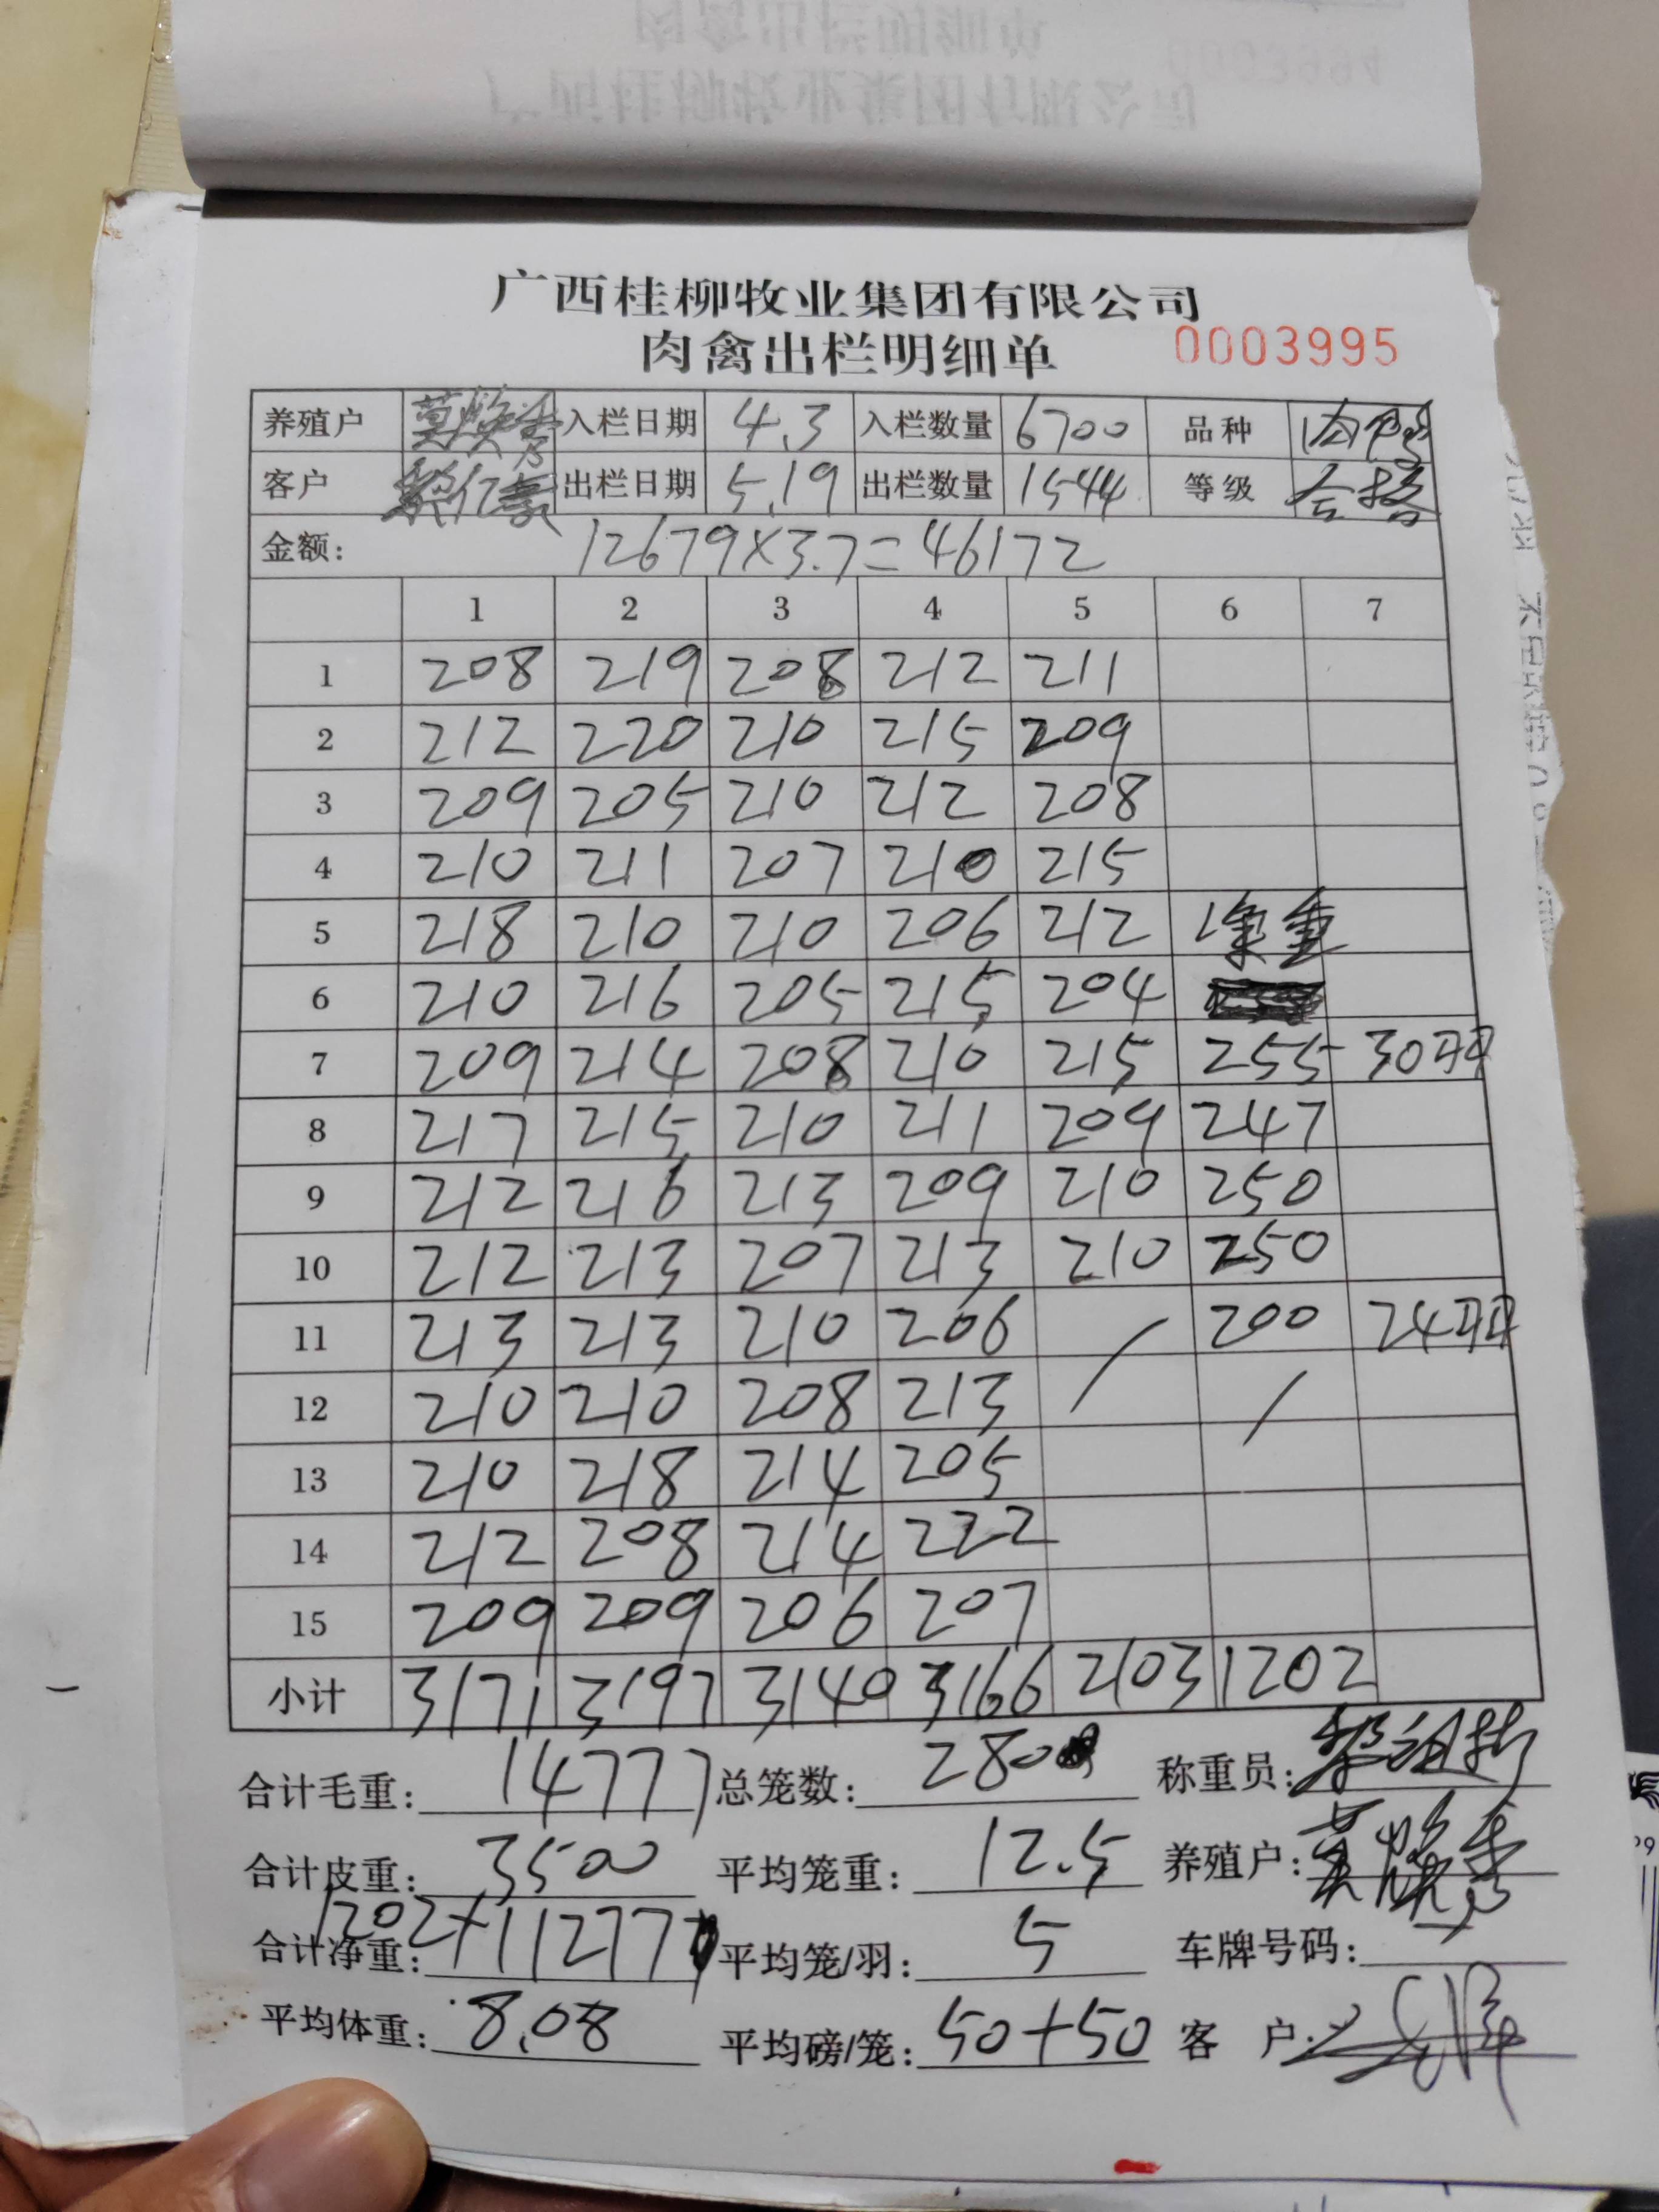 广西桂柳牧业集团有限公司
肉禽出栏明细单 0003995
养殖户 莫焕秀 入栏日期 4.3 入栏数量 6700 品种 肉鸭
客户 黎亿豪 出栏日期 5.19 出栏数量 1544 等级 合格
金额: 12679×3.7=46172
1 2 3 4 5 6 7
1 208 219 208 212 211
2 212 220 210 215 209
3 209 205 210 212 208
4 210 211 207 210 215
5 218 210 210 206 212 净重
6 210 216 205 215 204
7 209 214 208 210 215 255 30羽
8 217 215 210 211 209 247
9 212 216 213 209 210 250
10 212 213 207 213 210 250
11 213 213 210 206 / 200 24羽
12 210 210 208 213 /
13 210 218 214 205
14 212 208 214 222
15 209 209 206 207
小计 3171 3197 3140 3166 2103 1202
合计毛重: 14777 总笼数: 280 称重员:
合计皮重: 3500 平均笼重: 12.5 养殖户: 莫焕秀
合计净重: 1202+11277 平均笼/羽: 5 车牌号码:
平均体重: 8.08 平均磅/笼: 50+50 客 户: